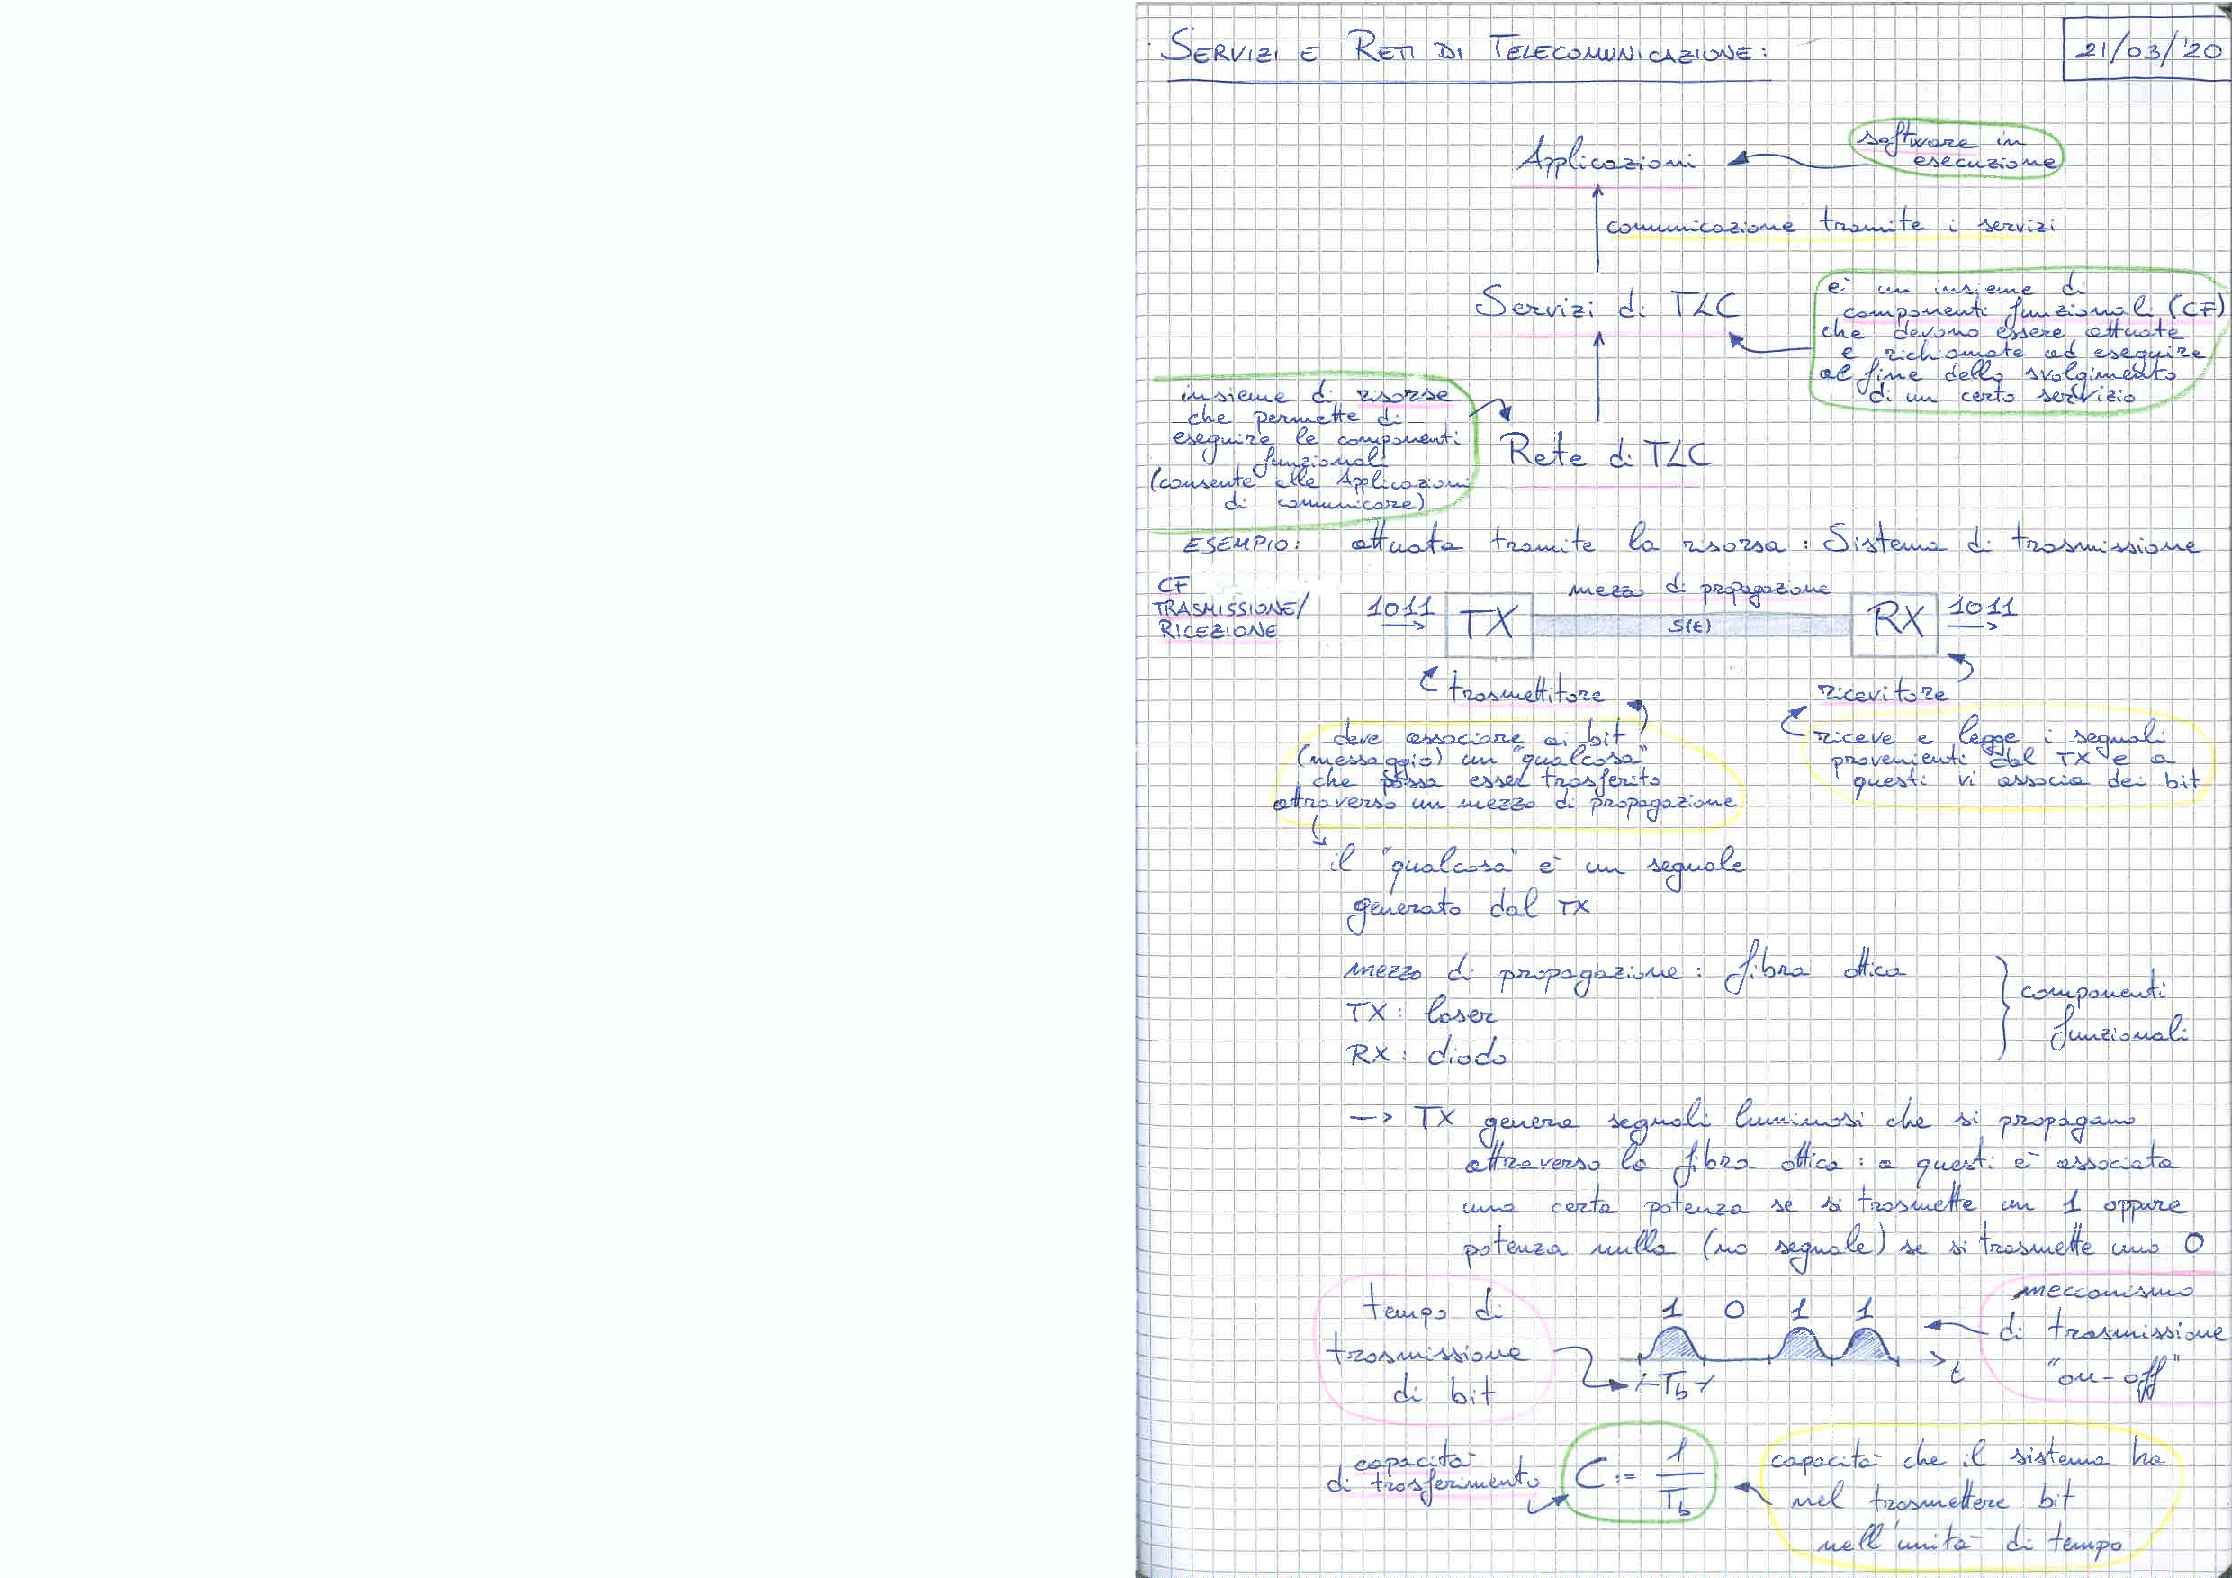 SERVIZI E RETI DI TELECOMUNICAZIONE:
21/03/'20
Applicazioni
software in
esecuzione
comunicazione tramite i servizi
Servizi di TLC
è un insieme di
componenti funzionali (CF)
che devono essere attuate
e richiamate ad eseguire
al fine dello svolgimento
di un certo servizio
insieme di risorse
che permette di
eseguire le componenti
funzionali
(consente alle Applicazioni
di comunicare)
Rete di TLC
ESEMPIO: attuata tramite la risorsa: Sistema di trasmissione
CF
TRASMISSIONE/
RICEZIONE
1011
TX
mezzo di propagazione
S(t)
RX
1011
trasmettitore
ricevitore
deve associare ai bit
(messaggio) un "qualcosa"
che possa esser trasferito
attraverso un mezzo di propagazione
riceve e legge i segnali
provenienti dal TX e a
questi vi associa dei bit
il "qualcosa" è un segnale
generato dal TX
mezzo di propagazione: fibra ottica
TX: laser
RX: diodo
componenti
funzionali
-> TX genera segnali luminosi che si propagano
attraverso la fibra ottica: a questi è associata
una certa potenza se si trasmette un 1 oppure
potenza nulla (no segnale) se si trasmette uno 0
tempo di
trasmissione
di bit
1 0 1 1
Tb
t
meccanismo
di trasmissione
"on-off"
capacità
di trasferimento
C := 1/Tb
capacità che il sistema ha
nel trasmettere bit
nell'unità di tempo